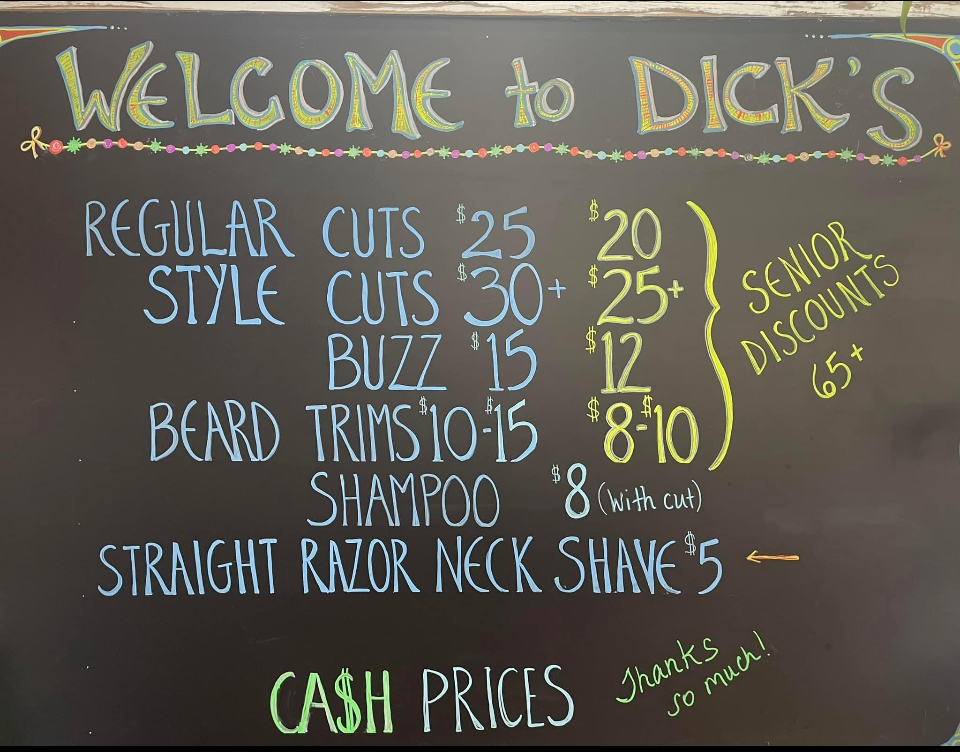 WELCOME to DICK'S
REGULAR CUTS $25 $20
STYLE CUTS $30+ $25+
BUZZ $15 $12
BEARD TRIMS $10-$15 $8-$10
SENIOR
DISCOUNTS
65+
SHAMPOO $8 (with cut)
STRAIGHT RAZOR NECK SHAVE $5
CA$H PRICES
Thanks
so much!